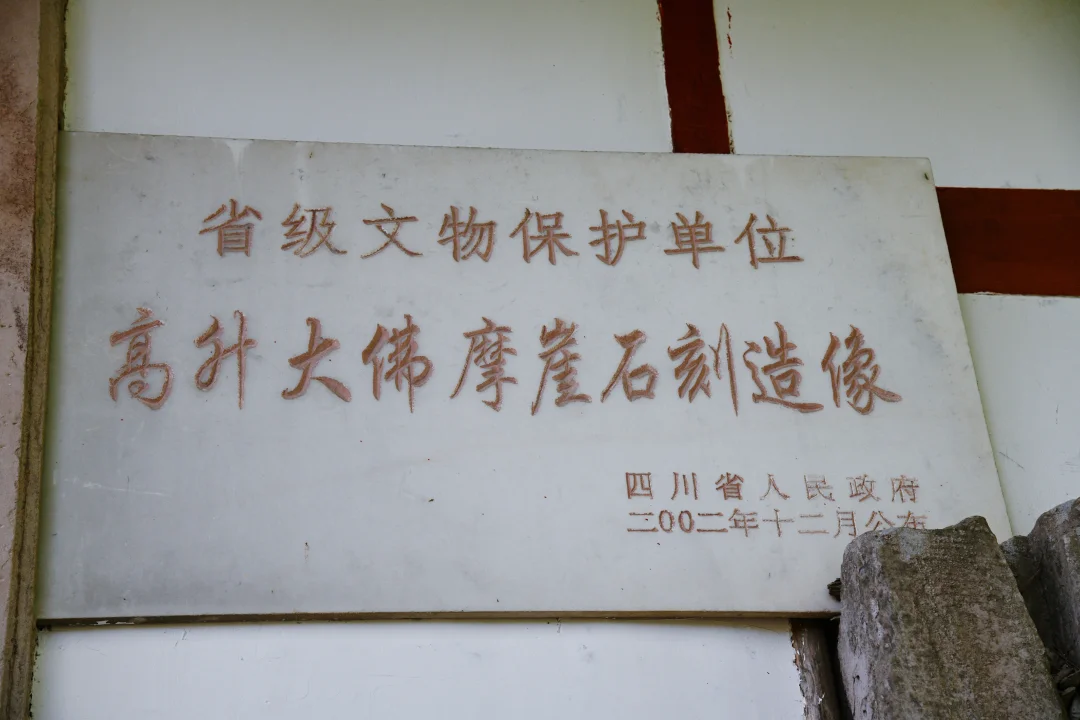 省级文物保护单位
高升大佛摩崖石刻造像
四川省人民政府
二00二年十二月公布